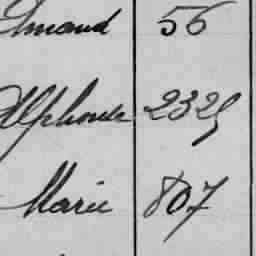 Armand 56
Alphonse 2325
Marie 807